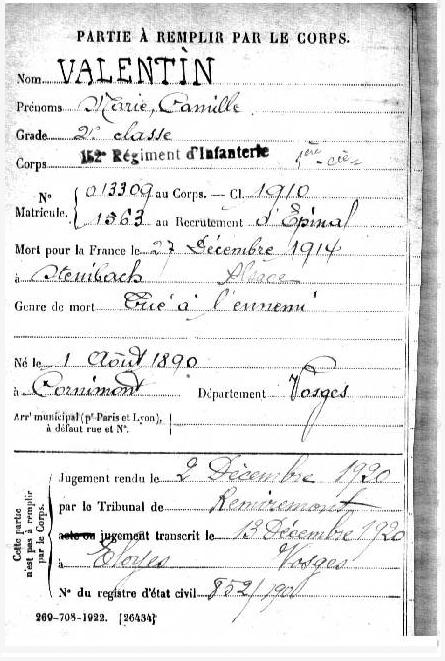 PARTIE À REMPLIR PAR LE CORPS.
Nom VALENTIN
Prénoms Marie, Camille
Grade 2e classe
Corps 152e Régiment d'Infanterie 1ère cie
N° Matricule. { 013309 au Corps. — Cl. 1910
1563 au Recrutement d'Epinal
Mort pour la France le 27 Décembre 1914
à Steinbach Alsace
Genre de mort Tué à l'ennemi
Né le 1 Août 1890
à Cornimont Département Vosges
Arrt municipal (pr Paris et Lyon), à défaut rue et N°.
Cette partie n'est pas à remplir par le Corps.
Jugement rendu le 2 Décembre 1920
par le Tribunal de Remiremont
acte ou jugement transcrit le 13 Décembre 1920
à Eloyes Vosges
N° du registre d'état civil 852/190
269-708-1922. [26434]